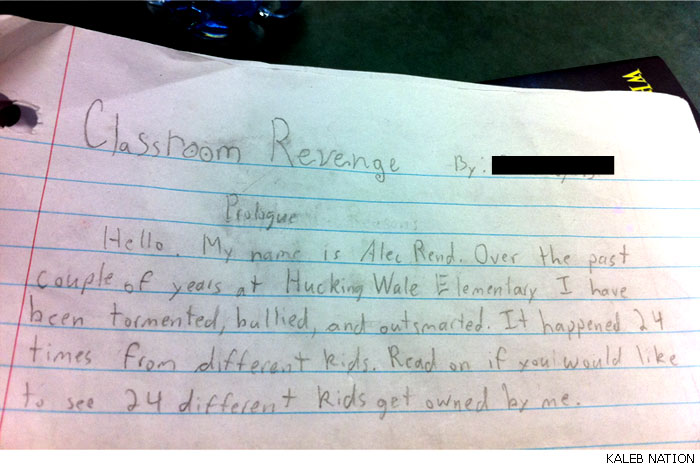 WH
Classroom Revenge By:
Prologue
Hello. My name is Alec Rend. Over the past
couple of years at Hucking Wale Elementary I have
been tormented, bullied, and outsmarted. It happened 24
times from different kids. Read on if you would like
to see 24 different kids get owned by me.
KALEB NATION